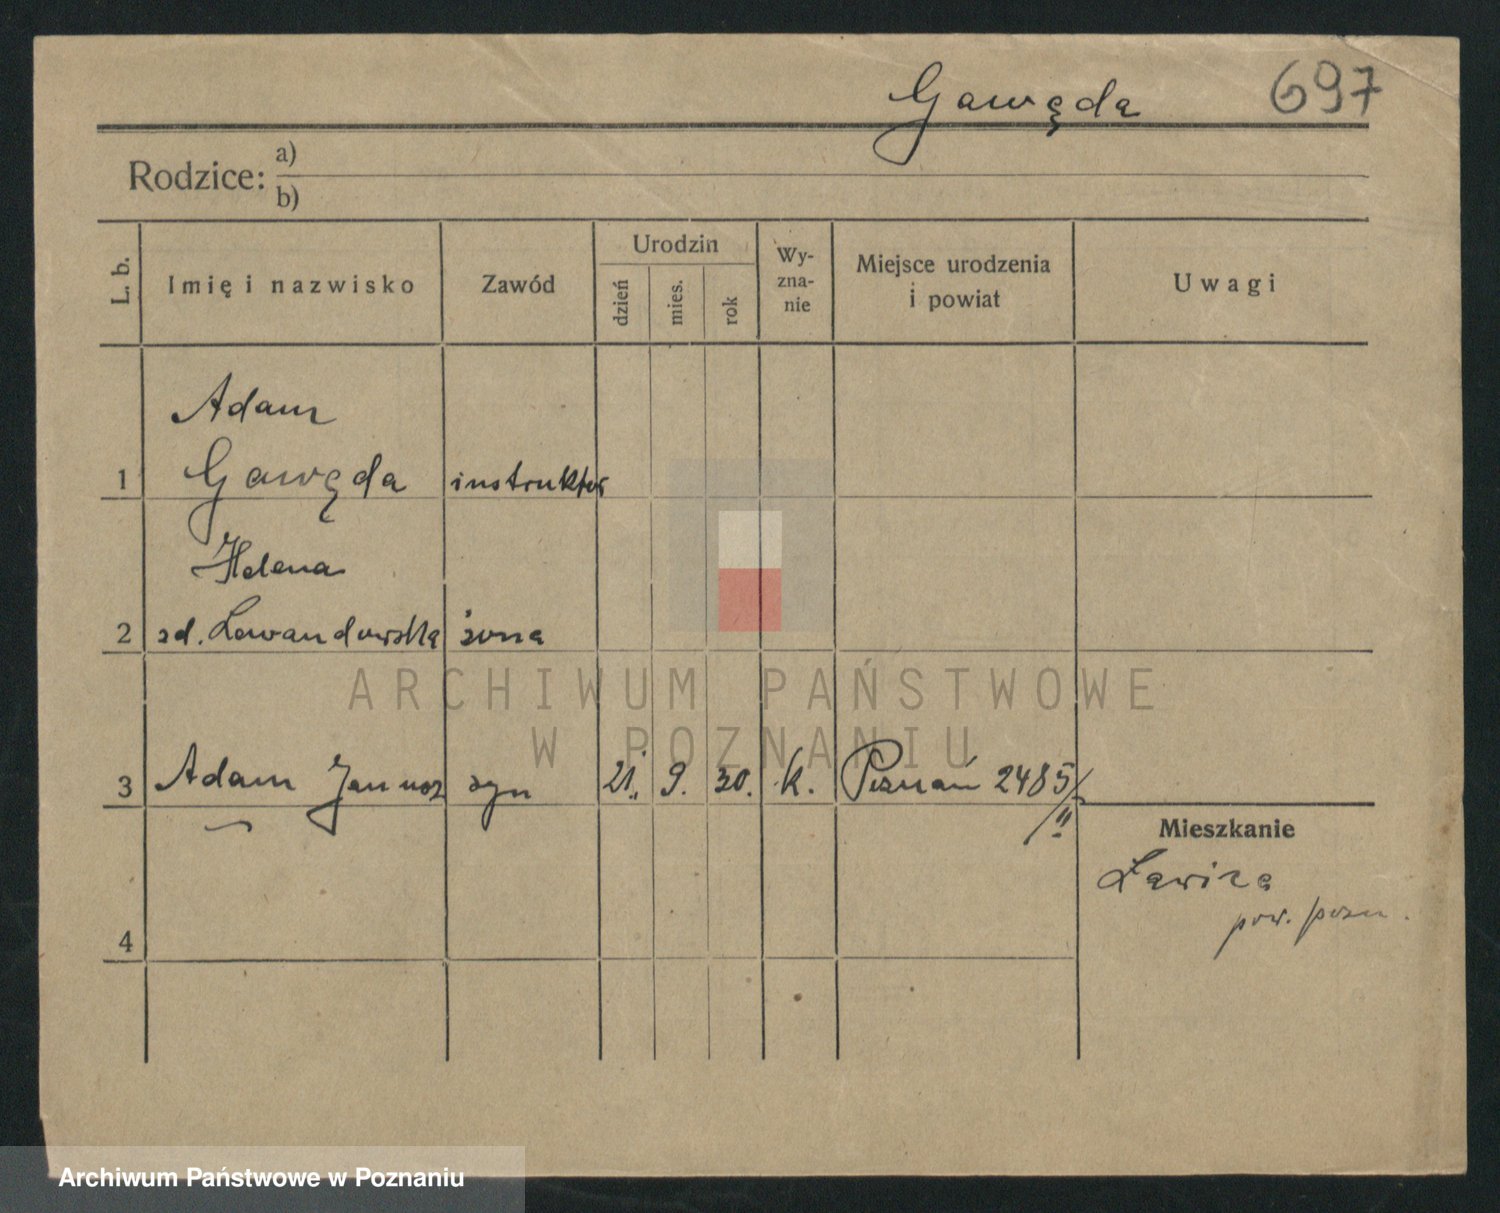 Gawęda 697
Rodzice: a)
b)
L. b.
Imię i nazwisko
Zawód
Urodzin
dzień
mies.
rok
Wy-
zna-
nie
Miejsce urodzenia
i powiat
Uwagi
Adam
1 Gawęda instruktor
Helena
2 zd. Lewandowska żona
3 Adam Janusz syn 21. 9. 30. k. Poznań 2485/
/II
Mieszkanie
Ławica
pow. pozn.
4
ARCHIWUM PAŃSTWOWE
W POZNANIU
Archiwum Państwowe w Poznaniu